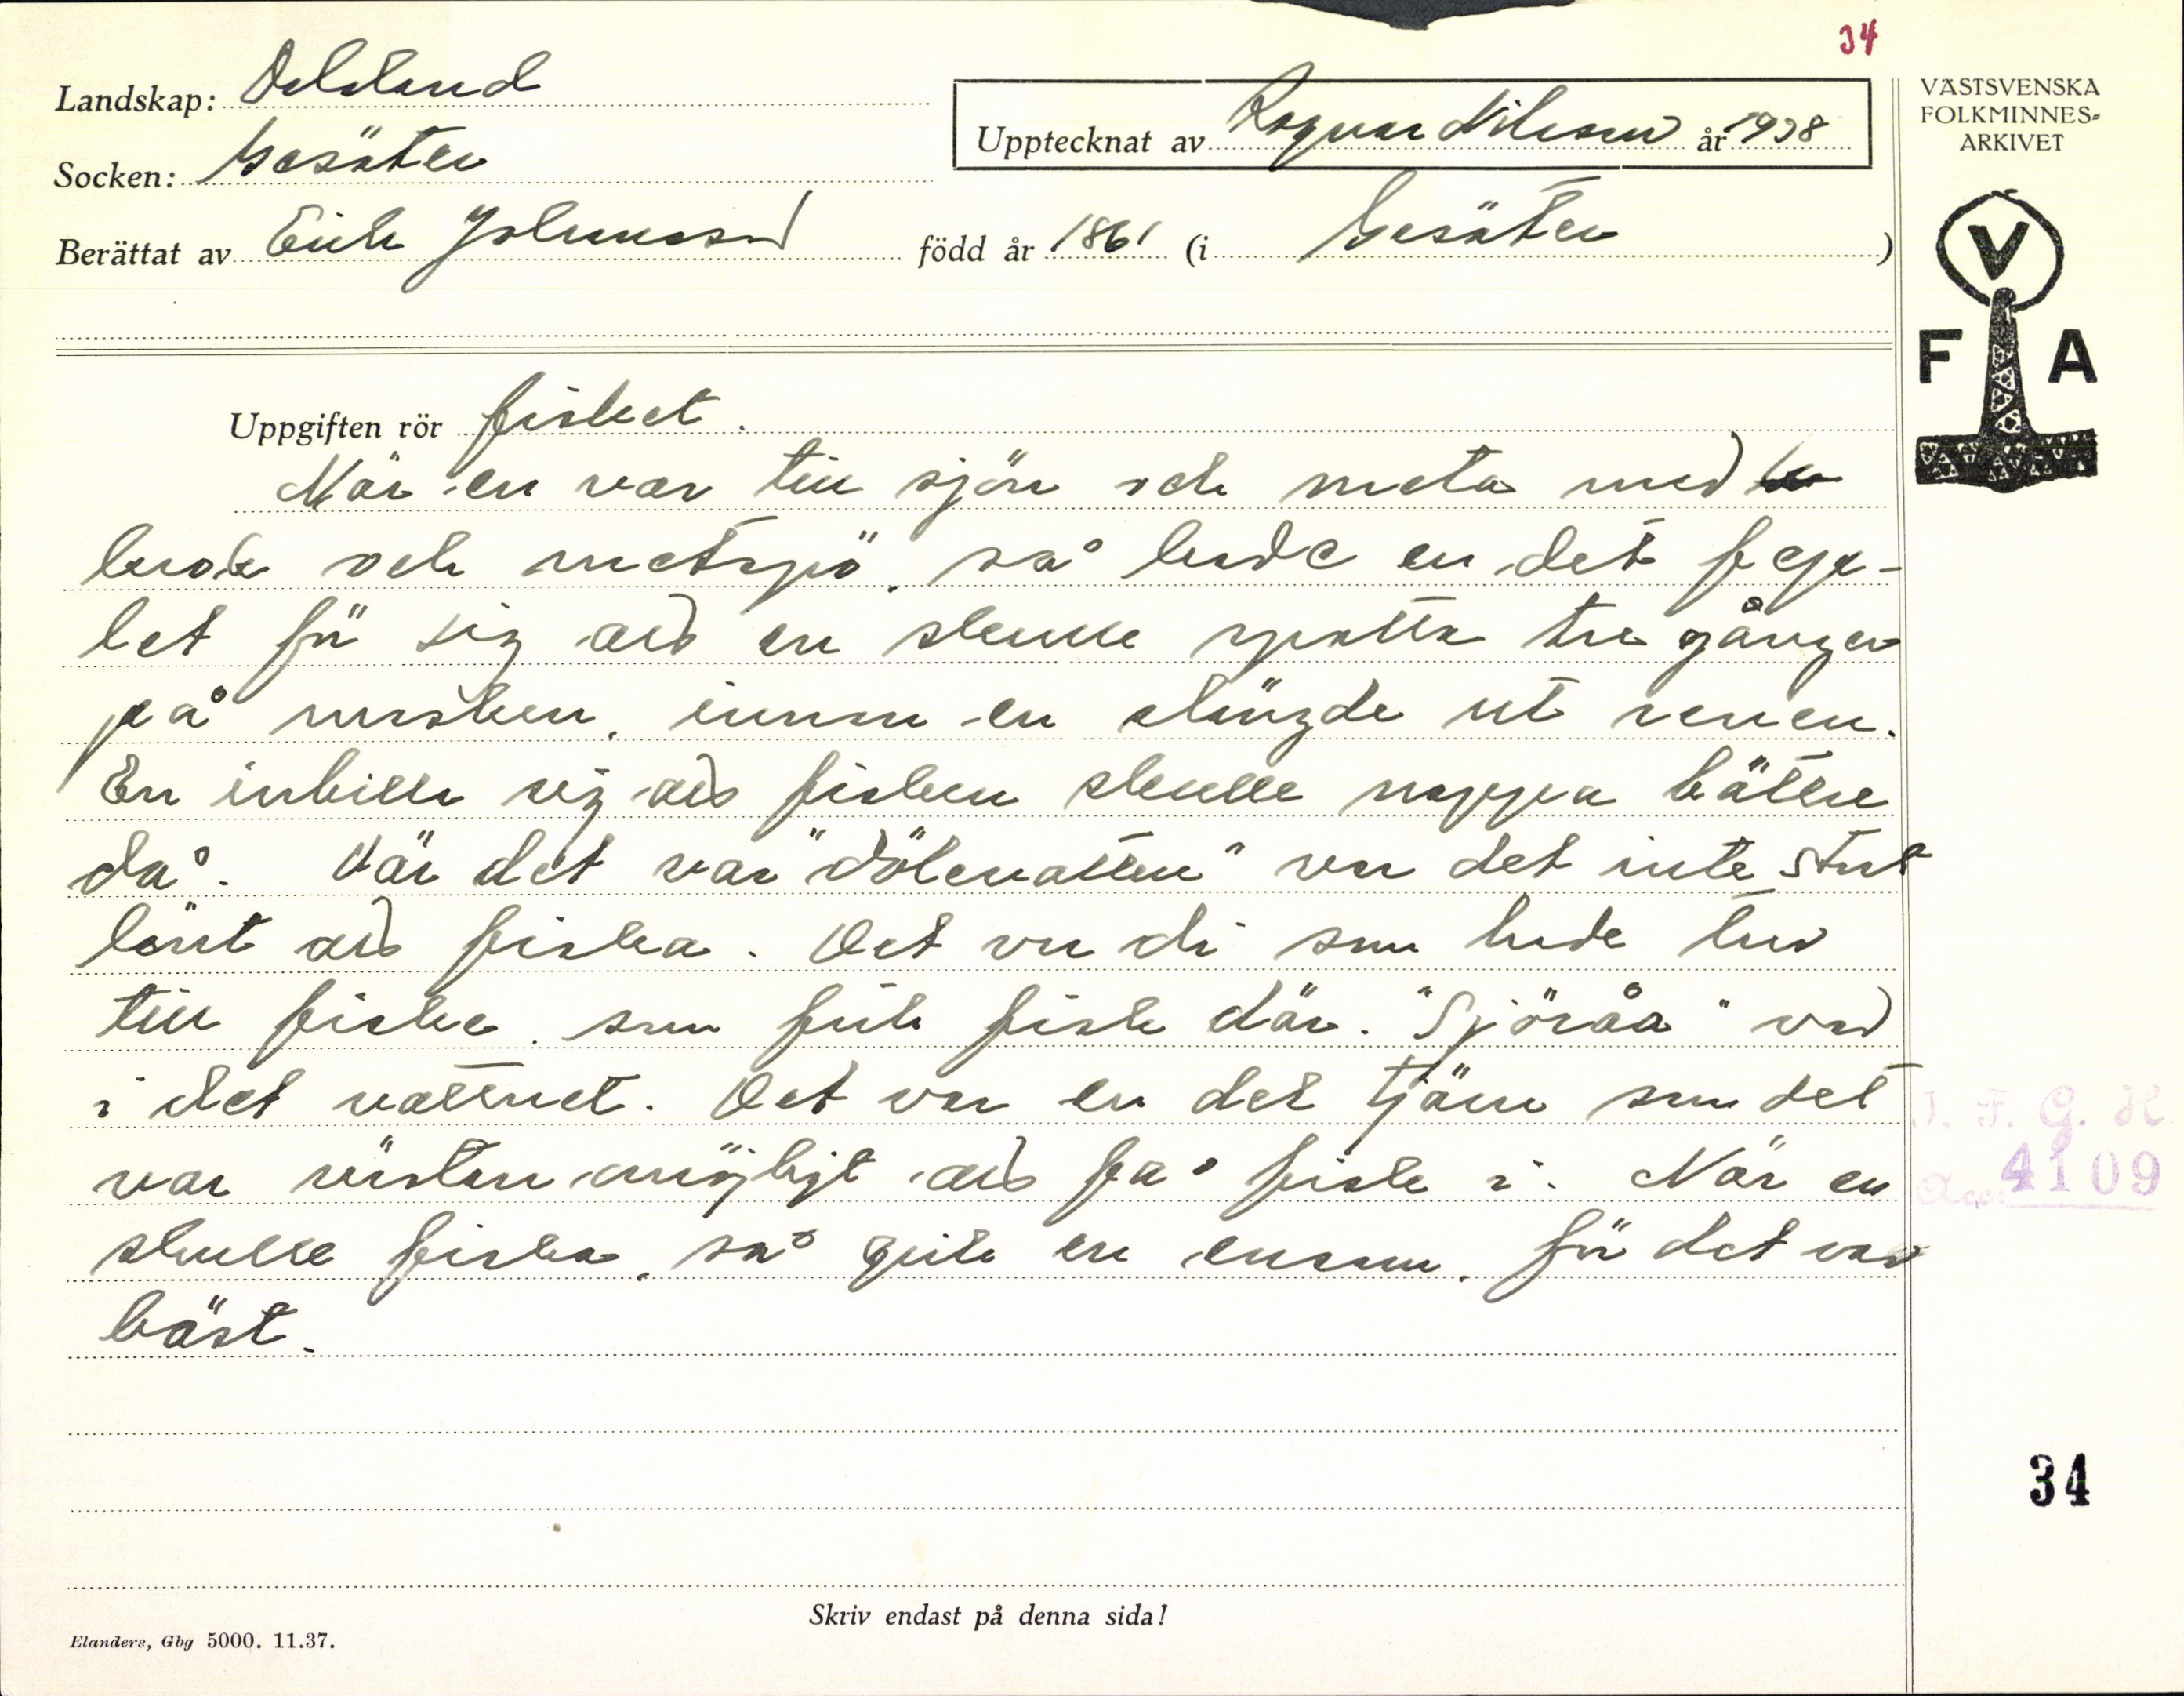 34
Landskap: Dalsland
Socken: Gesäter
Upptecknat av Ragnar Nilsson år 1938
Berättat av Erik Johansson född år 1861 (i Gesäter)
VÄSTSVENSKA
FOLKMINNES=
ARKIVET
V
F A
Uppgiften rör fisket.
När en var till sjön och meta med
krok och metspö, så hade en det fege-
let för sig att en skulle spotta tre gånger
på masken, innan en slängde ut reven.
En inbilla sig att fisken skulle nappa bättre
då. När det var "dölevatten" var det inte stort
lönt att fiska. Det var di som hade tur
till fiske, som fick fisk där. "Sjöråa" var
i det vattnet. Det var en del tjärn som det
var nästan omöjligt att få fisk i. När en
skulle fiska, så gick en ensam, för det var
bäst.
I. F. G. H.
Acc. 4109
34
Skriv endast på denna sida!
Elanders, Gbg 5000. 11.37.